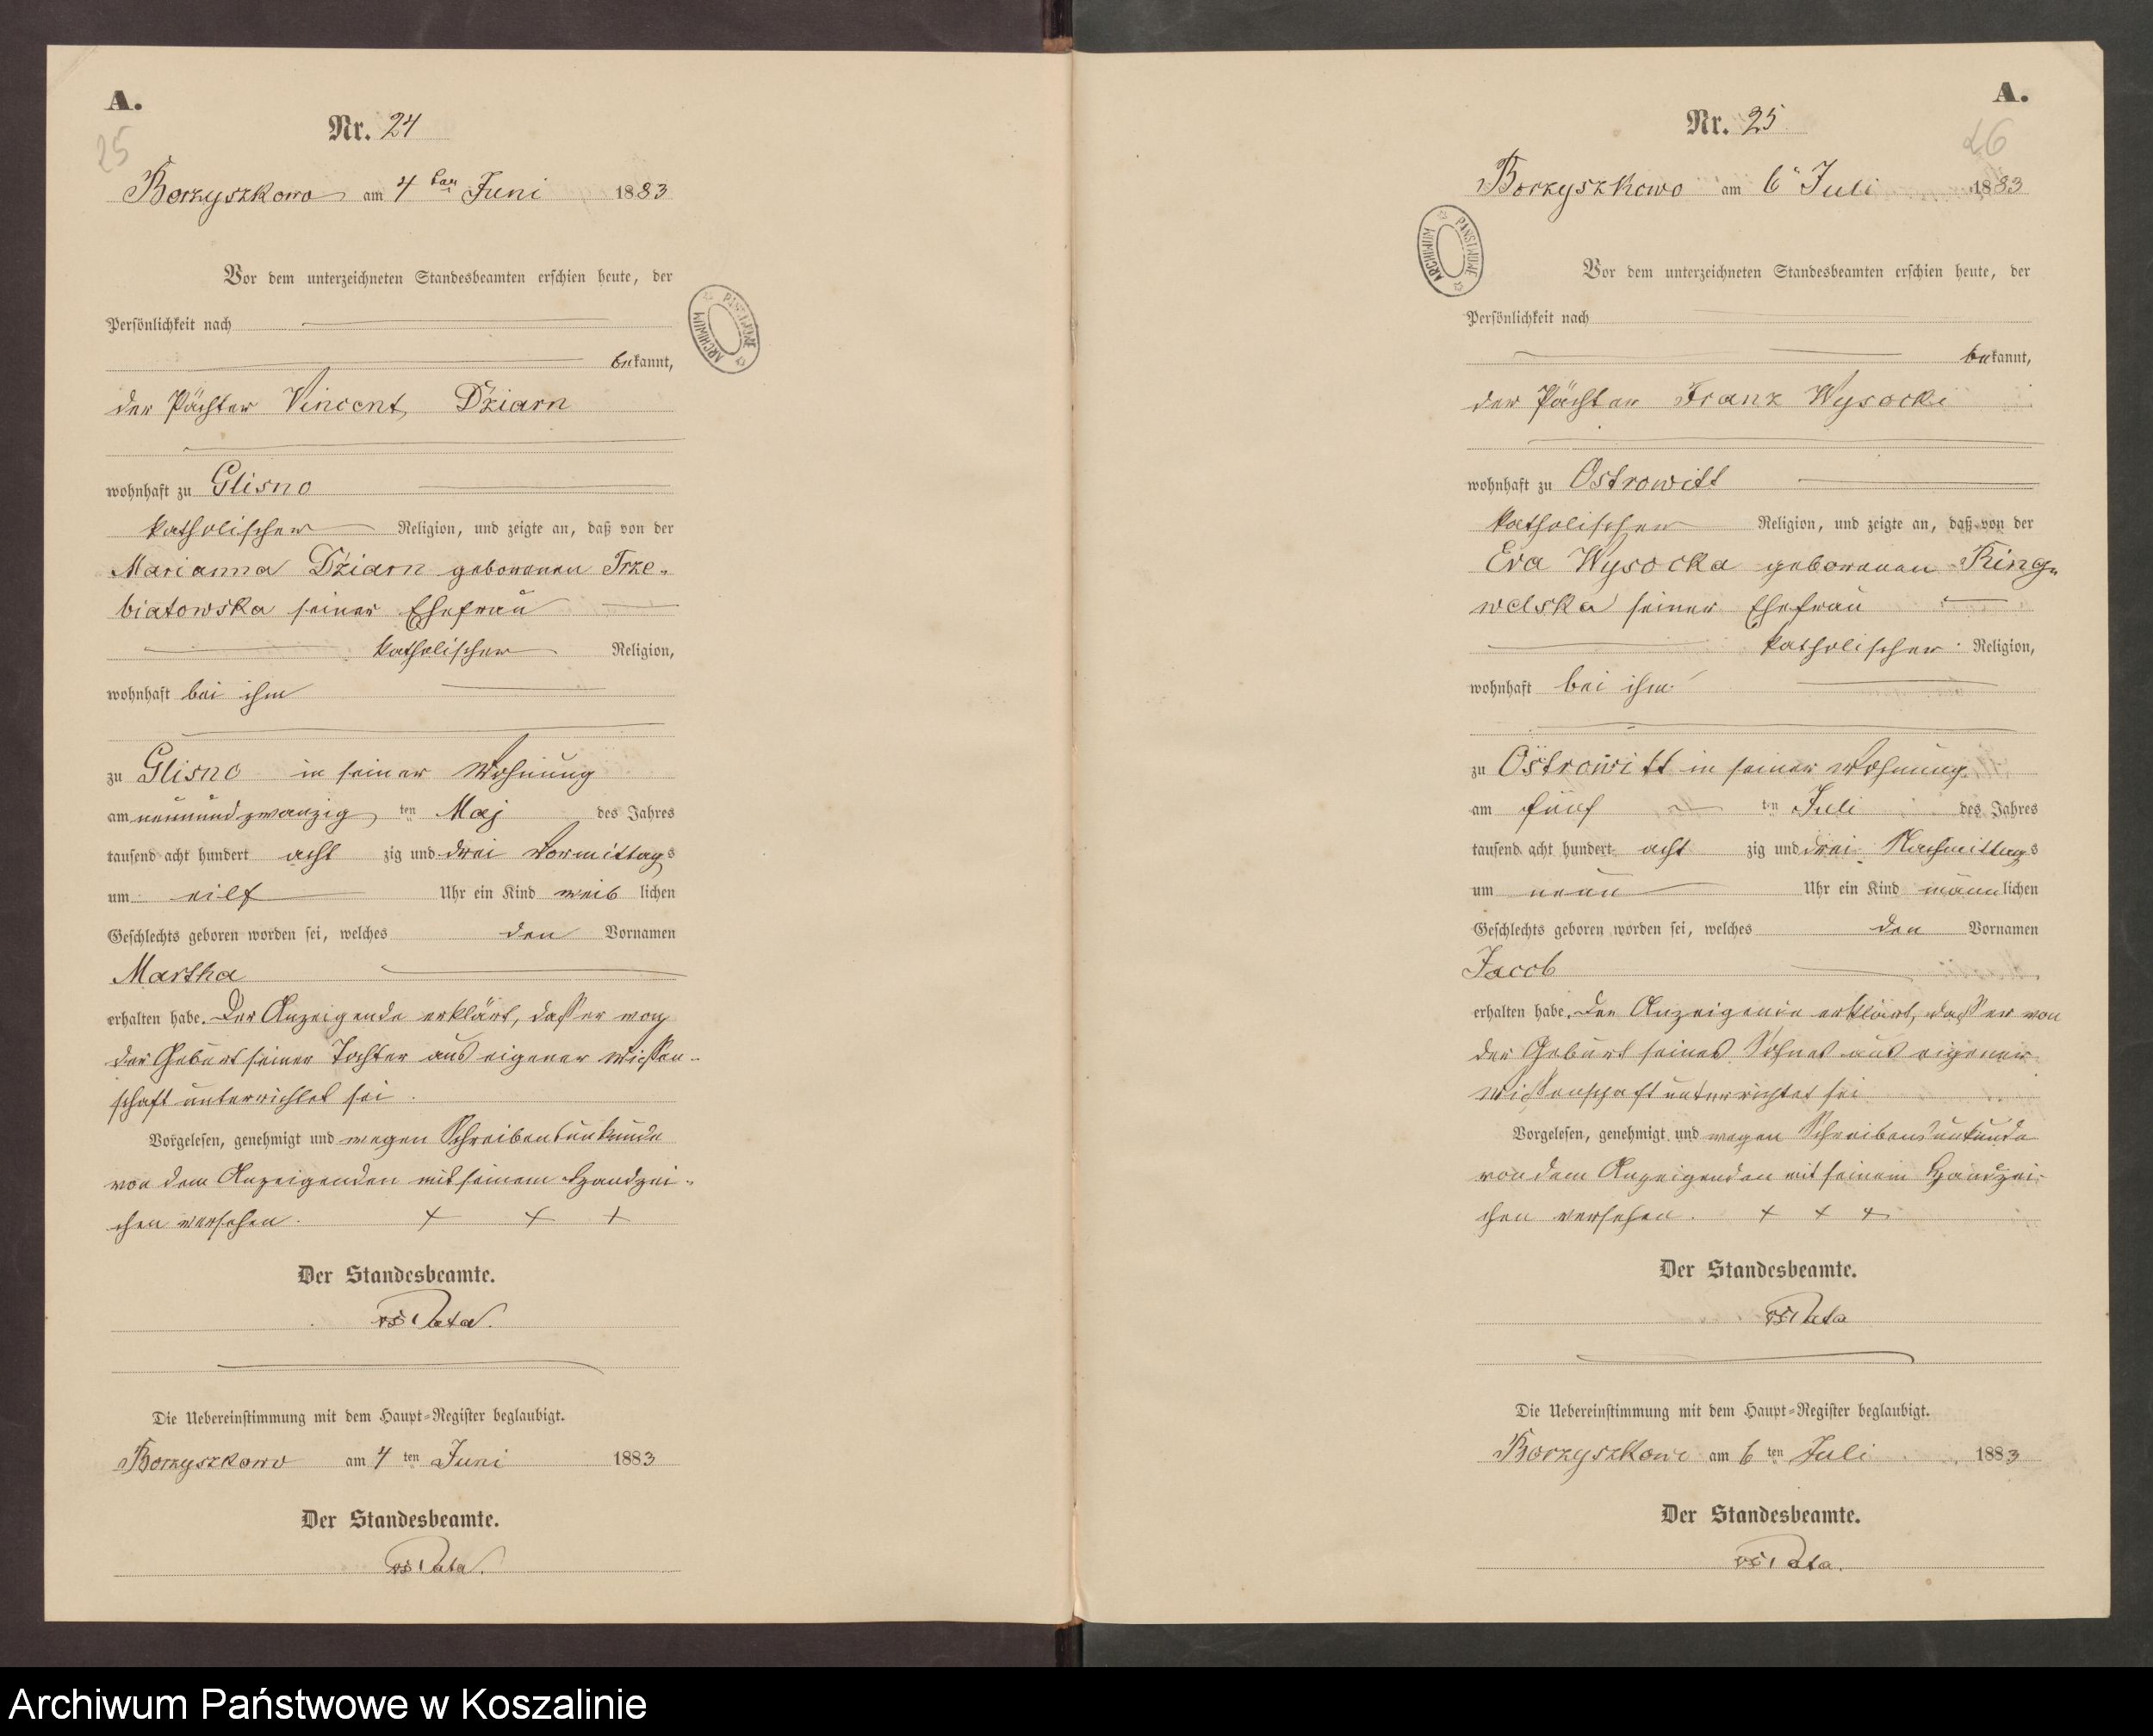 A.
25
Nr. 24
Borzyszkowo am 4 ten Juni 1883
Vor dem unterzeichneten Standesbeamten erschien heute, der
Persönlichkeit nach
bekannt,
der Pächter Vincent Dziarn
wohnhaft zu Glisno
katholischer Religion, und zeigte an, daß von der
Marianna Dziarn geborenen Trze-
biatowska seiner Ehefrau
katholischer Religion,
wohnhaft bei ihm
zu Glisno in seiner Wohnung
am neunundzwanzig ten Maj des Jahres
tausend acht hundert acht zig und drei Vormittags
um eilf Uhr ein Kind weib lichen
Geschlechts geboren worden sei, welches den Vornamen
Martha
erhalten habe. Der Anzeigende erklärt, dass er von
der Geburt seiner Tochter aus eigener Wissen-
schaft unterrichtet sei.
Vorgelesen, genehmigt und wegen Schreibensunkunde
von dem Anzeigenden mit seinem Handzei-
chen versehen. + + +
Der Standesbeamte.
Die Uebereinstimmung mit dem Haupt-Register beglaubigt.
Borzyszkowo am 4 ten Juni 1883
Der Standesbeamte.
ARCHIWUM PAŃSTWOWE
A.
26
Nr. 25
Borzyszkowo am 6 Juli 1883
Vor dem unterzeichneten Standesbeamten erschien heute, der
Persönlichkeit nach
bekannt,
der Pächter Franz Wysocki
wohnhaft zu Ostrowitt
katholischer Religion, und zeigte an, daß von der
Eva Wysocka geborenen Ring-
welska seiner Ehefrau
katholischer Religion,
wohnhaft bei ihm
zu Ostrowitt in seiner Wohnung
am fünf ten Juli des Jahres
tausend acht hundert acht zig und drei Nachmittags
um neun Uhr ein Kind männ lichen
Geschlechts geboren worden sei, welches den Vornamen
Jacob
erhalten habe. Der Anzeigende erklärt, dass er von
der Geburt seines Sohnes aus eigener
Wissenschaft unterrichtet sei
Vorgelesen, genehmigt und wegen Schreibensunkunde
von dem Anzeigenden mit seinem Handzei-
chen versehen. + + +
Der Standesbeamte.
Die Uebereinstimmung mit dem Haupt-Register beglaubigt.
Borzyszkowo am 6 ten Juli 1883
Der Standesbeamte.
ARCHIWUM PAŃSTWOWE
Archiwum Państwowe w Koszalinie